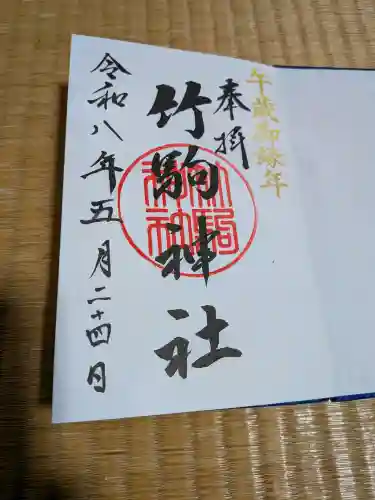 午歳御縁年
奉拝
竹駒神社
竹駒神社
令和八年五月二十四日